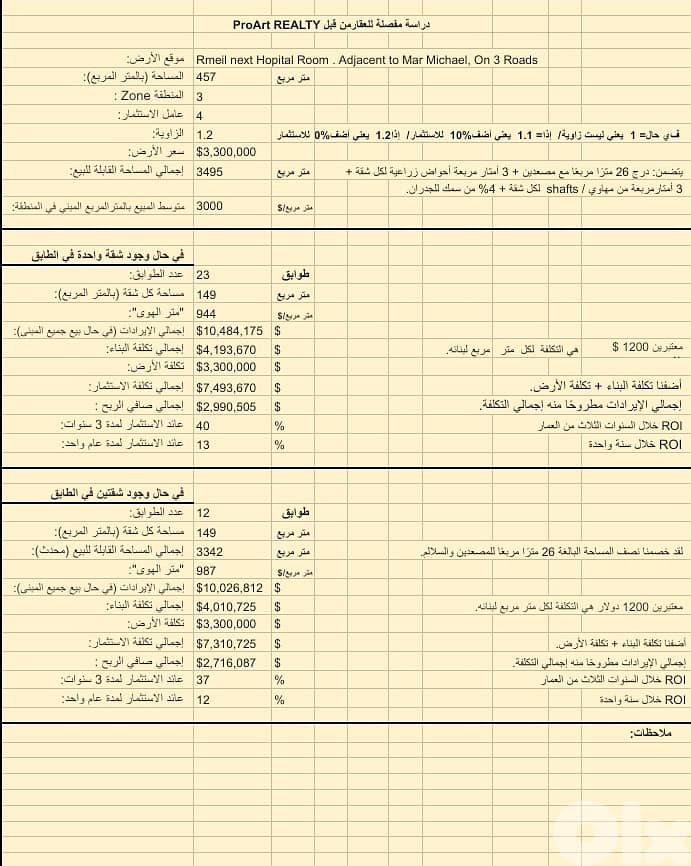 دراسة مفصلة للعقارمن قبل ProArt REALTY
موقع الأرض: Rmeil next Hopital Room . Adjacent to Mar Michael, On 3 Roads
المساحة (بالمتر المربع): 457 متر مربع
المنطقة Zone : 3
عامل الاستثمار: 4
الزاوية: 1.2 في حال= 1 يعني ليست زاوية/ إذا= 1.1 يعني أضف 10% للاستثمار/ إذا1.2 يعني أضف0% للاستثمار
سعر الأرض: $3,300,000
إجمالي المساحة القابلة للبيع: 3495 متر مربع يتضمن: درج 26 مترًا مربعًا مع مصعدين + 3 أمتار مربعة أحواض زراعية لكل شقة +
3 أمتارمربعة من مهاوي / shafts لكل شقة + 4% من سمك للجدران.
متوسط المبيع بالمترالمربع المبني في المنطقة: 3000 متر مربع/$
في حال وجود شقة واحدة في الطابق
عدد الطوابق: 23 طوابق
مساحة كل شقة (بالمتر المربع): 149 متر مربع
"متر الهوى": 944 متر مربع/$
إجمالي الإيرادات (في حال بيع جميع المبنى): $10,484,175 $
إجمالي تكلفة البناء: $4,193,670 $ معتبرين 1200 $ هي التكلفة لكل متر مربع لبنائه.
تكلفة الأرض: $3,300,000 $
إجمالي تكلفة الاستثمار: $7,493,670 $ أضفنا تكلفة البناء + تكلفة الأرض.
إجمالي صافي الربح : $2,990,505 $ إجمالي الإيرادات مطروحًا منه إجمالي التكلفة.
عائد الاستثمار لمدة 3 سنوات: 40 % ROI خلال السنوات الثلاث من العمار
عائد الاستثمار لمدة عام واحد: 13 % ROI خلال سنة واحدة
في حال وجود شقتين في الطابق
عدد الطوابق: 12 طوابق
مساحة كل شقة (بالمتر المربع): 149 متر مربع
إجمالي المساحة القابلة للبيع (محدث): 3342 متر مربع لقد خصمنا نصف المساحة البالغة 26 مترًا مربعًا للمصعدين والسلالم.
"متر الهوى": 987 متر مربع/$
إجمالي الإيرادات (في حال بيع جميع المبنى): $10,026,812 $
إجمالي تكلفة البناء: $4,010,725 $ معتبرين 1200 دولار هي التكلفة لكل متر مربع لبنائه.
تكلفة الأرض: $3,300,000 $
إجمالي تكلفة الاستثمار: $7,310,725 $ أضفنا تكلفة البناء + تكلفة الأرض.
إجمالي صافي الربح : $2,716,087 $ إجمالي الإيرادات مطروحًا منه إجمالي التكلفة.
عائد الاستثمار لمدة 3 سنوات: 37 % ROI خلال السنوات الثلاث من العمار
عائد الاستثمار لمدة عام واحد: 12 % ROI خلال سنة واحدة
ملاحظات:
olx